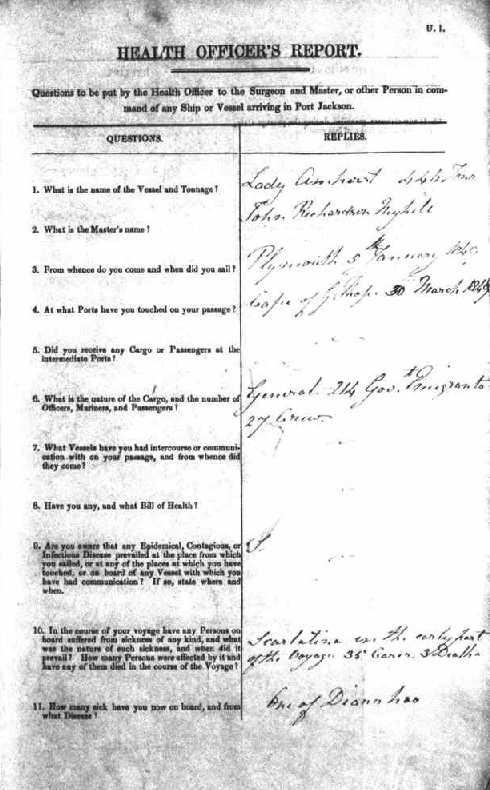 U. 1.
HEALTH OFFICER'S REPORT.
Questions to be put by the Health Officer to the Surgeon and Master, or other Person in com-
mand of any Ship or Vessel arriving in Port Jackson.
QUESTIONS.
REPLIES.
1. What is the name of the Vessel and Tonnage?
Lady Amherst 446 Tons
2. What is the Master's name?
John Richardson
3. From whence do you come and when did you sail?
Plymouth 5th January
4. At what Ports have you touched on your passage?
Cape of G. Hope 30 March 1849
5. Did you receive any Cargo or Passengers at the
Intermediate Ports?
6. What is the nature of the Cargo, and the number of
Officers, Mariners, and Passengers?
General 214 Govt Emigrants
27 Crew
7. What Vessels have you had intercourse or communi-
cation with on your passage, and from whence did
they come?
8. Have you any, and what Bill of Health?
9. Are you aware that any Epidemical, Contagious, or
Infectious Disease prevailed at the place from which
you sailed, or at any of the places at which you have
touched, or on board of any Vessel with which you
have had communication? If so, state where and
when.
10. In the course of your voyage have any Persons on
board suffered from sickness of any kind, and what
was the nature of such sickness, and when did it
prevail? How many Persons were affected by it and
have any of them died in the course of the Voyage?
Scarlatina in the early part
of the Voyage 35 Cases 3 Deaths
11. How many sick have you now on board, and from
what Disease?
One of Diarrhoea